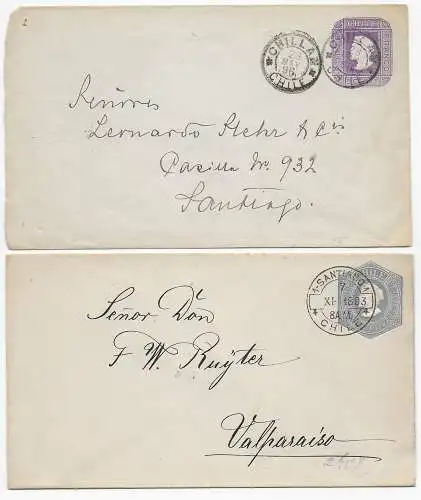 CHILLAN
CHILE
Señores
Leonardo Stehr & Cía
Casilla No. 932
Santiago.
SANTIAGO
7
XI 1893
8 A.M.
CHILE
Señor Don
F. W. Ruÿter
Valparaiso